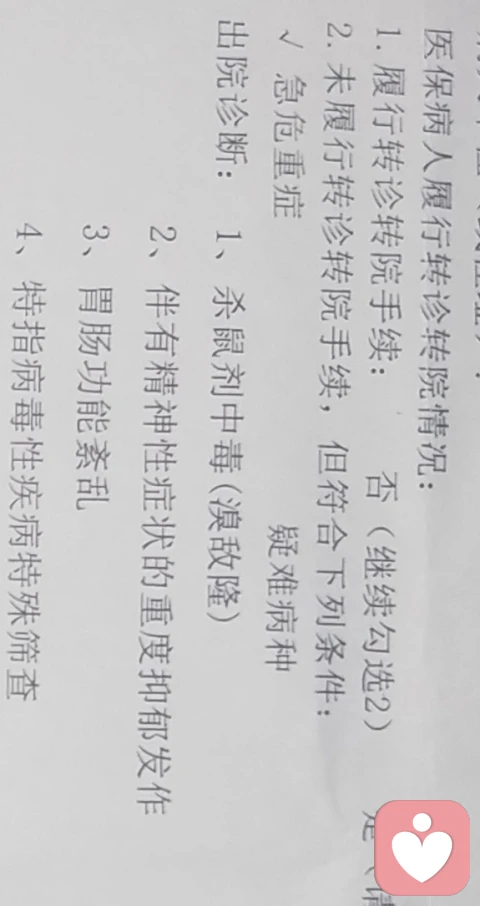 医保病人履行转诊转院情况：
1. 履行转诊转院手续： 否（继续勾选2）
2. 未履行转诊转院手续，但符合下列条件：
√ 急危重症 疑难病种
出院诊断： 1、杀鼠剂中毒(溴敌隆)
2、伴有精神性症状的重度抑郁发作
3、胃肠功能紊乱
4、特指病毒性疾病特殊筛查